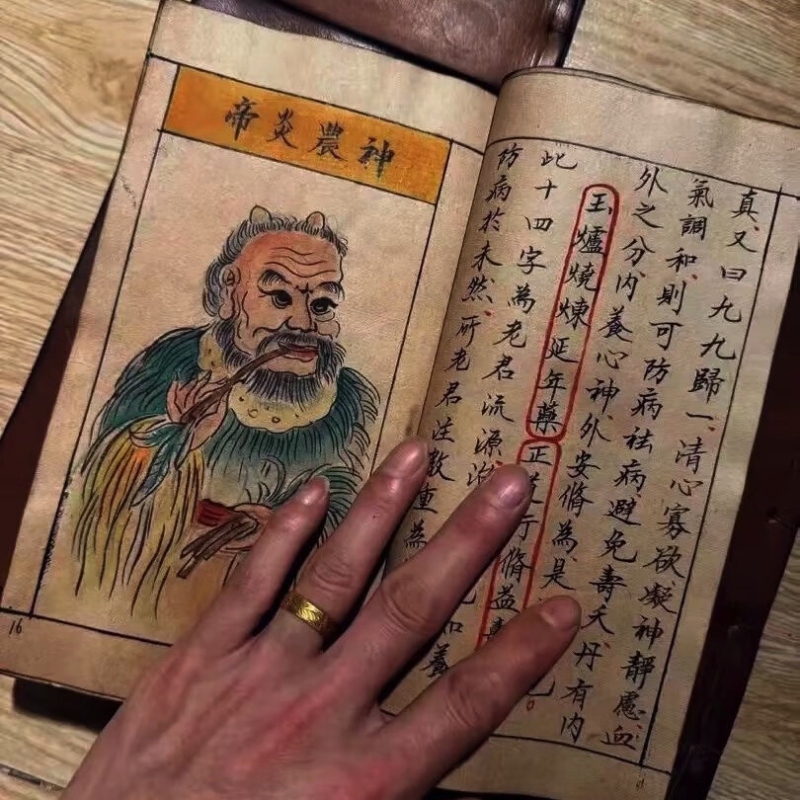 神農炎帝
真、又曰九九歸一、清心寡欲凝神靜慮、血
氣調和、則可防病祛病避免壽夭、丹有內
外之分、內養心神、外安脩為、是
玉爐燒煉延年藥正行脩益
此十四字為老君流源
防病於未然、所老君注教重為如養
16